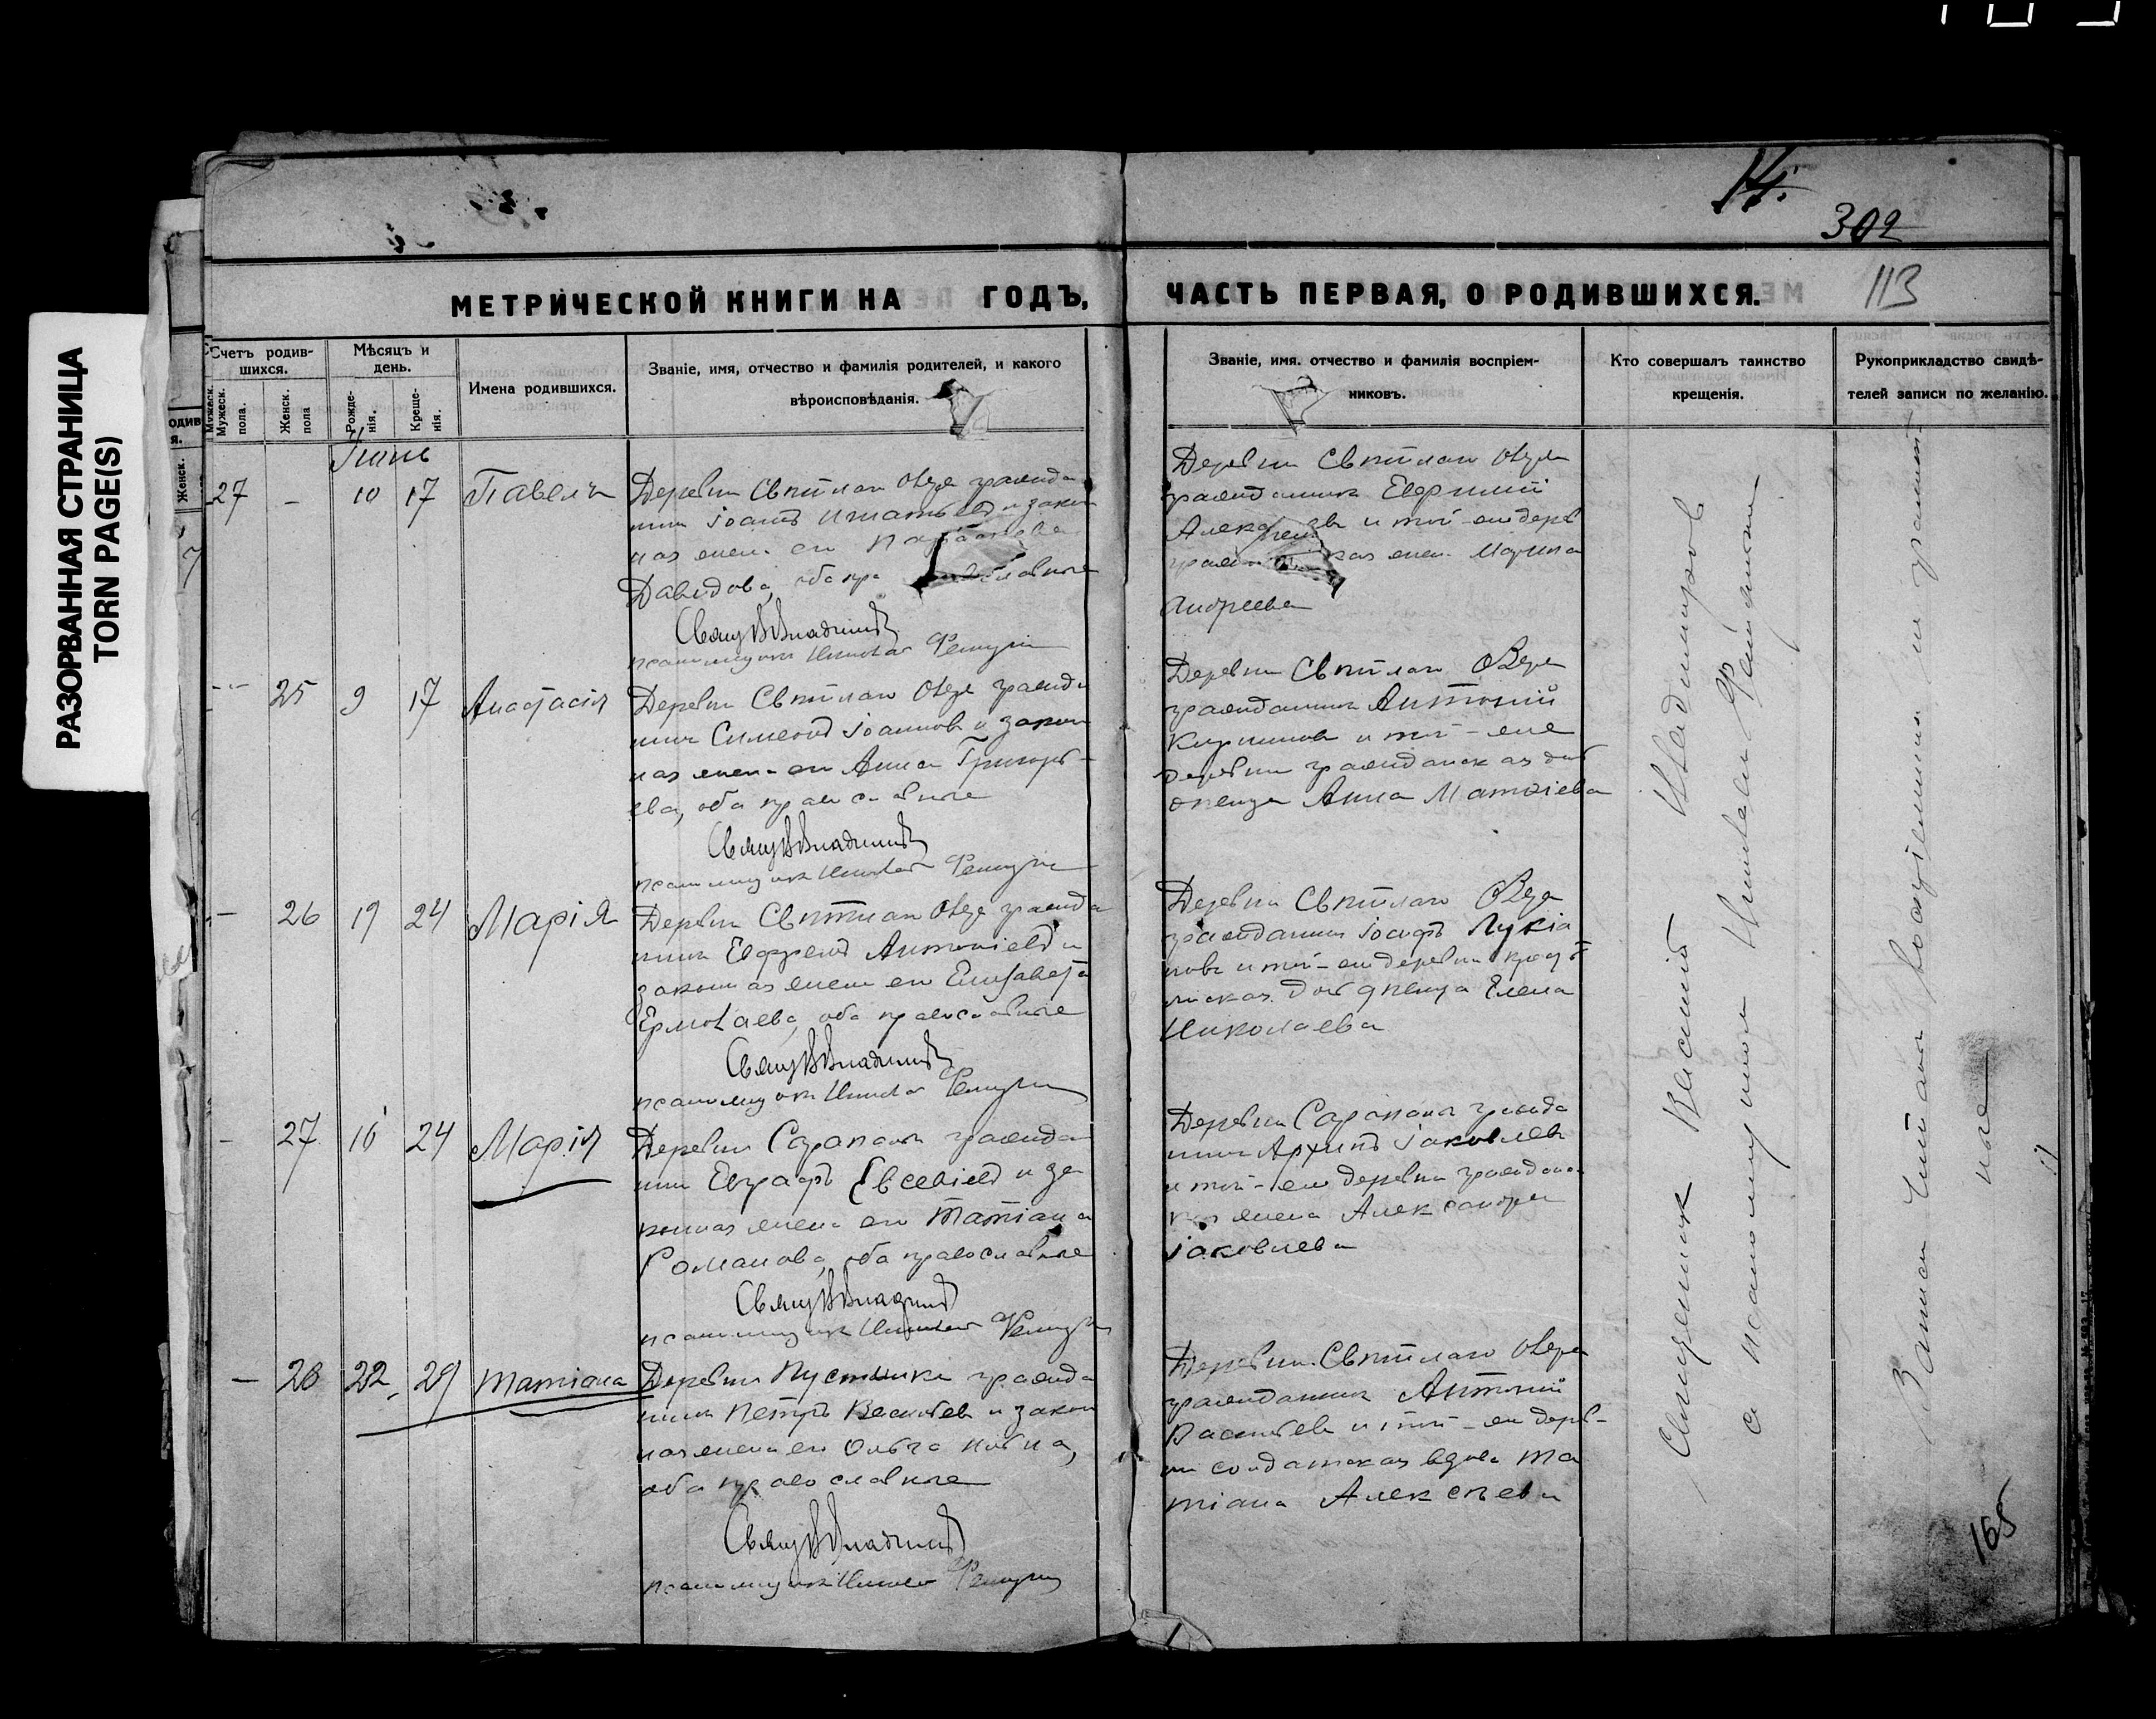 РАЗОРВАННАЯ СТРАНИЦА
TORN PAGE(S)
14.
302
113
МЕТРИЧЕСКОЙ КНИГИ НА ГОДЪ,
ЧАСТЬ ПЕРВАЯ, О РОДИВШИХСЯ.
Счетъ родив-
шихся.
Мужеск.
пола.
Женск.
пола
Мѣсяцъ и
день.
Рожде-
нія.
Креще-
нія.
Имена родившихся.
Званіе, имя, отчество и фамилія родителей, и какого
вѣроисповѣданія.
Званіе, имя. отчество и фамилія воспріем-
никовъ.
Кто совершалъ таинство
крещенія.
Рукоприкладство свидѣ-
телей записи по желанію.
Іюнь
27 - 10 17 Павелъ
Деревни Свѣтлаго Озера гражда
нинъ Іоаннъ Игнатьевъ и закон
ная жена его
Давидова, оба православные
Свящ В Владиміровъ
псаломщикъ Николай
Деревни Свѣтлаго Озера
гражданинъ Евфимій
и той-же дерев
жена Марина
Андреева
25 9 17 Анастасія
Деревни Свѣтлаго Озера гражда
нинъ Симеонъ Іоанновъ и закон
ная жена его Анна Григорь-
ева, оба православные
Свящ В Владиміровъ
псаломщикъ Николай
Деревни Свѣтлаго Озера
гражданинъ Антоній
и той-же
деревни гражданская дѣ
вица Анна Матѳіева
- 26 19 24 Марія
Деревни Свѣтлаго Озера гражда
нинъ Евфремъ Антоніевъ и
законная жена его Елисавета
Ермолаева, оба православные
Свящ В Владиміровъ
псаломщикъ Николай
Деревни Свѣтлаго Озера
гражданинъ Іосифъ Лукіа
новъ и той-же деревни крестья
нская дѣвица Елена
Николаева
- 27 16 24 Марія
Деревни гражда
нинъ Евграфъ Евсевіевъ и за
конная жена его Татіана
Романова, оба православные
Свящ В Владиміровъ
псаломщикъ Николай
Деревни гражда
нинъ Архипъ Іаковлевъ
и той-же деревни гражданс
кая жена Александра
Іаковлева
- 28 22 29 Татіана
Деревни Пустынки гражда
нинъ Петръ Васильевъ и закон
ная жена его Ольга
оба православные
Свящ В Владиміровъ
псаломщикъ Николай
Деревни Свѣтлаго Озера
гражданинъ Антоній
Васильевъ и той-же дерев-
ни солдатская вдова Та
тіана Алексѣева
Священникъ Василій Владиміровъ
съ псаломщикомъ Николаемъ
Записи читаны воспріемники не грамот-
ные
165